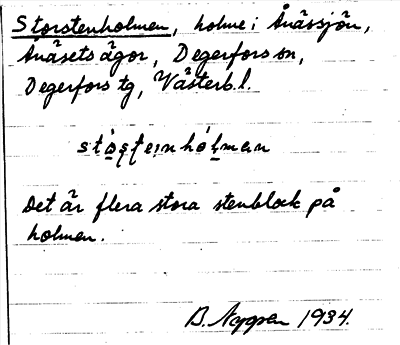 Storstenholmen, holme i Ånässjön,
Ånäsets ägor, Degerfors sn,
Degerfors tg, Västerb.l.
Det är flera stora stenblock på
holmen.
B. Nygren 1934.